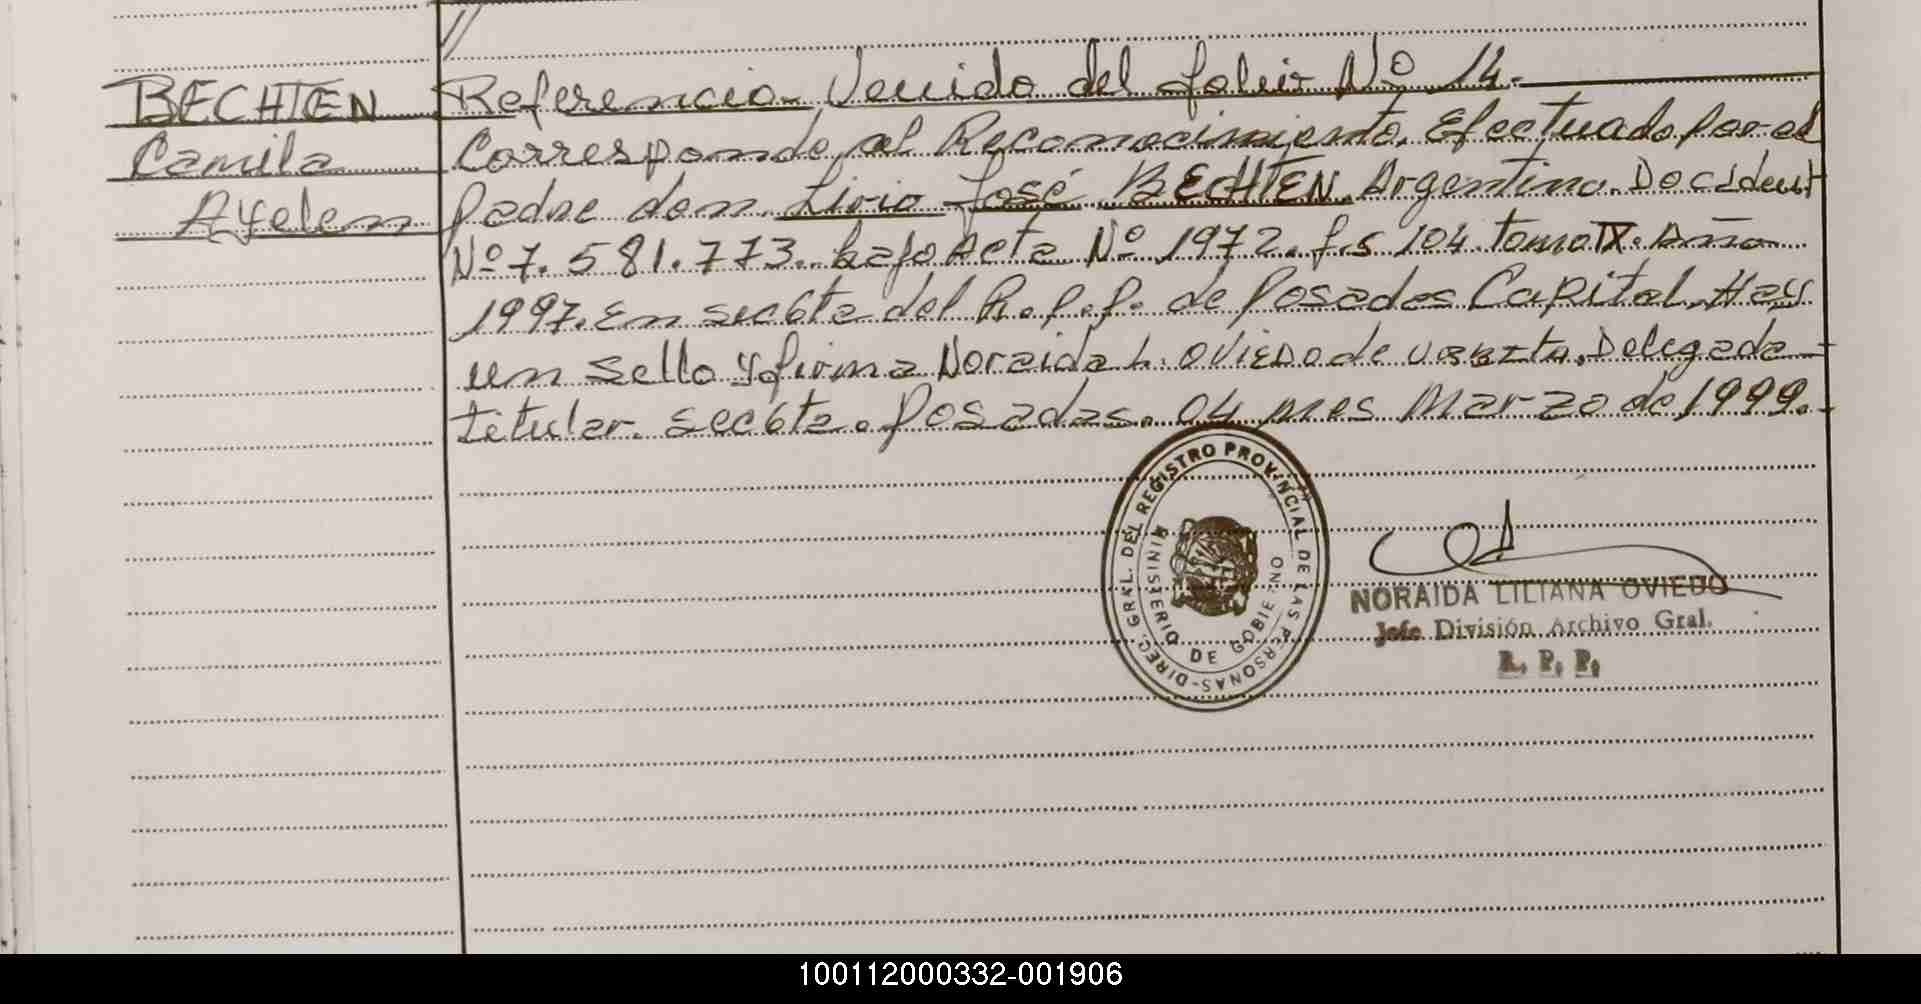 //
BECHTEN
Camila
Ayelen
Referencia Venido del folio Nº 14.-
Corresponde al Reconocimiento. Efectuado por el
padre don. Lirio José BECHTEN. Argentino. Doc Ident
Nº 7.581.773. bajo Acta Nº 1972. fs 104. tomo IX. Año
1997. En sec 6ta del R.P.P. de Posadas Capital. Hay
un sello y firma Noraida L. OVIEDO de Delegada
titular. sec 6ta. Posadas. 04 mes Marzo de 1999.-
DIREC. GRAL. DEL REGISTRO PROVINCIAL DE LAS PERSONAS-
MINISTERIO DE GOBIERNO
NORAIDA LILIANA OVIEDO
Jefe División Archivo Gral.
R. P. P.
100112000332-001906